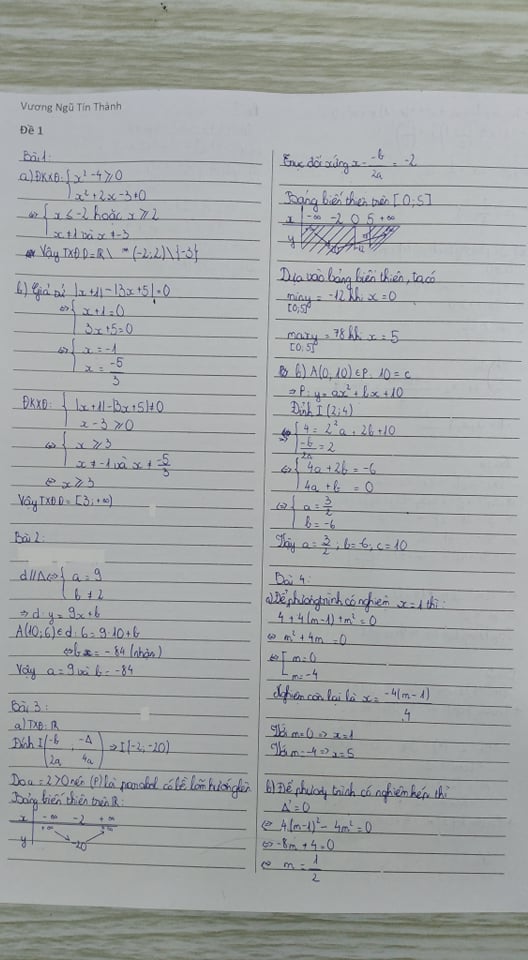 Vương Ngũ Tín Thành
Đề 1
Bài 1:
a) ĐKXĐ: { x² - 4 ⩾ 0
x² + 2x - 3 ≠ 0
⇔ { x ≤ -2 hoặc x ⩾ 2
x ≠ 1 và x ≠ -3
Vậy TXĐ D = R \ (-2; 2) \ {-3}
b) Giả sử |x+1| - |3x+5| = 0
⇔ { x + 1 = 0
3x + 5 = 0
⇔ { x = -1
x = -5/3
ĐKXĐ: { |x+1| - |3x+5| ≠ 0
x - 3 ⩾ 0
⇔ { x ⩾ 3
x ≠ -1 và x ≠ -5/3
⇔ x ⩾ 3
Vậy TXĐ D = [3; +∞)
Bài 2:
d // Δ ⇔ { a = 9
b ≠ 2
⇒ d: y = 9x + b
A(10; 6) ∈ d: 6 = 9·10 + b
⇔ b = -84 (nhận)
Vậy a = 9 và b = -84
Bài 3:
a) TXĐ: R
Đỉnh I (-b/2a; -Δ/4a) ⇒ I(-2; -20)
Do a = 2 > 0 nên (P) là parabol có bề lõm hướng lên
Bảng biến thiên trên R:
x -∞ -2 +∞
y +∞ -20 +∞
Trục đối xứng x = -b/2a = -2
Bảng biến thiên trên [0; 5]
x -∞ -2 0 5 +∞
y -12
Dựa vào bảng biến thiên, ta có
min y = -12 khi x = 0
[0; 5]
max y = 78 khi x = 5
[0; 5]
b) A(0, 10) ∈ P: 10 = c
⇒ P: y = ax² + bx + 10
Đỉnh I (2; 4)
⇔ { 4 = 2²a + 2b + 10
-b/2a = 2
⇔ { 4a + 2b = -6
4a + b = 0
⇔ { a = 3/2
b = -6
Vậy a = 3/2; b = -6; c = 10
Bài 4:
a) Để phương trình có nghiệm x = 1 thì:
4 + 4(m-1) + m² = 0
⇔ m² + 4m = 0
⇔ [ m = 0
m = -4
Nghiệm còn lại là x = -4(m-1)/4
Với m = 0 ⇒ x = 1
Với m = -4 ⇒ x = 5
b) Để phương trình có nghiệm kép thì
Δ' = 0
⇔ 4(m-1)² - 4m² = 0
⇔ -8m + 4 = 0
⇔ m = 1/2